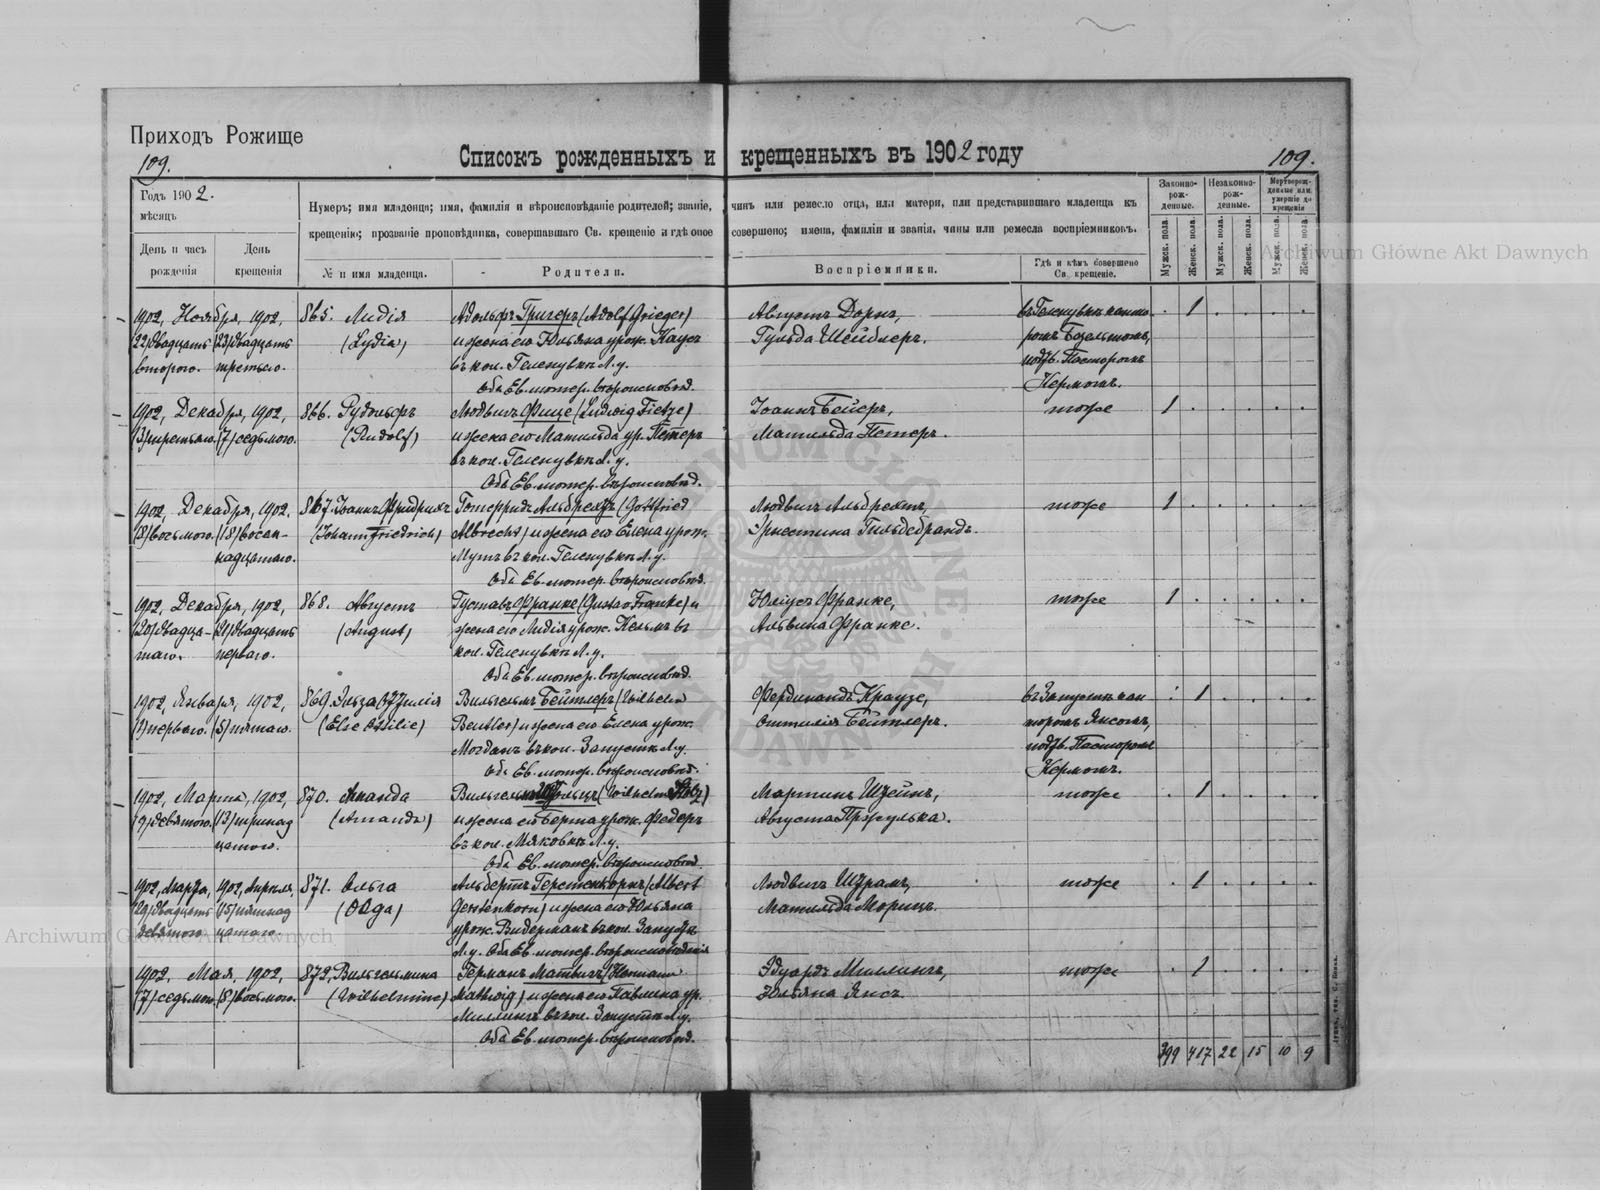 Приходъ Рожище
109.
109.
Списокъ рожденныхъ и крещенныхъ въ 1902 году
Годъ 1902.
мѣсяцъ
День и часъ рожденія
День крещенія
Нумеръ; имя младенца; имя, фамилія и вѣроисповѣданіе родителей; званіе, чинъ или ремесло отца, или матери, или представившаго младенца къ
крещенію; прозваніе проповѣдника, совершавшаго Св. крещеніе и гдѣ оное совершено; имена, фамиліи и званія, чины или ремесла воспріемниковъ.
№ и имя младенца.
Родители.
Воспріемники.
Гдѣ и кѣмъ совершено Св. крещеніе.
Законно-рож-денные.
Незаконно-рож-денные.
Мертворож-денные или умершіе до крещенія
Мужск. пола
Женск. пола.
Мужск. пола.
Женск. пола.
Мужск. пола.
Женск. пола.
1902, Ноября, 1902, 865. Лидія Адольфъ Григеръ (Adolf Grieger) Августъ Дорнъ, въ Геленувкѣ канто- 1
22) двадцать 23) двадцать (Lydia) и жена его Юльяна урож. Каусъ Гульда Шейблеръ.
второго. третьяго. въ кол. Геленувкѣ Л.у. подъ. Пасторомъ
Оба Ев. лютер. вѣроисповѣд. Кермомъ.
1902, Декабря, 1902, 866. Рудольфъ Людвигъ Фице (Ludwig Fietze) Іоаннъ Бейеръ, тоже 1
(3) третьяго. (7) седьмого. (Rudolf) и жена его Матильда ур. Петеръ Матильда Петеръ.
въ кол. Геленувкѣ Л.у.
Оба Ев. лютер. вѣроисповѣд.
1902, Декабря, 1902. 867. Іоаннъ Фридрихъ Готфридъ Альбрехтъ (Gottfried Людвигъ Альбрехтъ, тоже 1
(8) восьмого. (18) восем- (Johann Friedrich) Albrecht) и жена его Елена урож. Эрнестина Гильдебрандъ.
надцатаго. Мутъ въ кол. Геленувкѣ Л.у.
Оба Ев. лютер. вѣроисповѣд.
1902, Декабря, 1902, 868. Августъ Густавъ Франке (Gustav Franke) и Юліусъ Франке, тоже 1
(20) двадца- (21) двадцать (August) жена его Лидія урож. Кельмъ въ Альвина Франке.
таго. перваго. кол. Геленувкѣ Л.у.
Оба Ев. лютер. вѣроисповѣд.
1902, Января, 1902, 869. Эльза Оттилія Вильгельмъ Бейтлеръ (Wilhelm Фердинандъ Краузе, въ Запустѣ кан 1
(1) перваго. (5) пятаго. (Else Ottilie) Beutler) и жена его Елена урож. Оттилія Бейтлеръ. торомъ Янсомъ,
въ кол. Запустѣ Л.у. подъ. Пасторомъ
Оба Ев. лютер. вѣроисповѣд. Кермомъ.
1902, Марта, 1902, 870. Аманда (Wilhelm Мартинъ Штейнъ, тоже 1
(9) девятого. (13) тринад (Amanda) и жена его Берта урож. Федеръ Августа
цатого. въ кол. Маковкѣ Л.у.
Оба Ев. лютер. вѣроисповѣд.
1902, Марта, 1902, Апреля, 871. Ольга Альбертъ Герстенкорнъ (Albert Людвигъ Шрамъ, тоже 1
(29) двадцать (15) пятнад (Olga) Gerstenkorn) и жена его Юльяна Матильда Морицъ.
девятого цатаго. урож. Видерманъ въ кол. Запустѣ
Л.у. Оба Ев. лютер. вѣроисповѣданія
1902, Мая, 1902, 872. Вильгельмина Германъ Матвигъ (Hermann Эдуардъ Миллингъ, тоже 1
(7) седьмого. (8) восьмого. (Wilhelmine) Mathwig) и жена его Павлина ур. Юльяна Янсъ.
Миллингъ въ кол. Запустѣ Л.у.
Оба Ев. лютер. вѣроисповѣд.
399 417 22 15 10 9
Archiwum Główne Akt Dawnych
Archiwum Główne Akt Dawnych